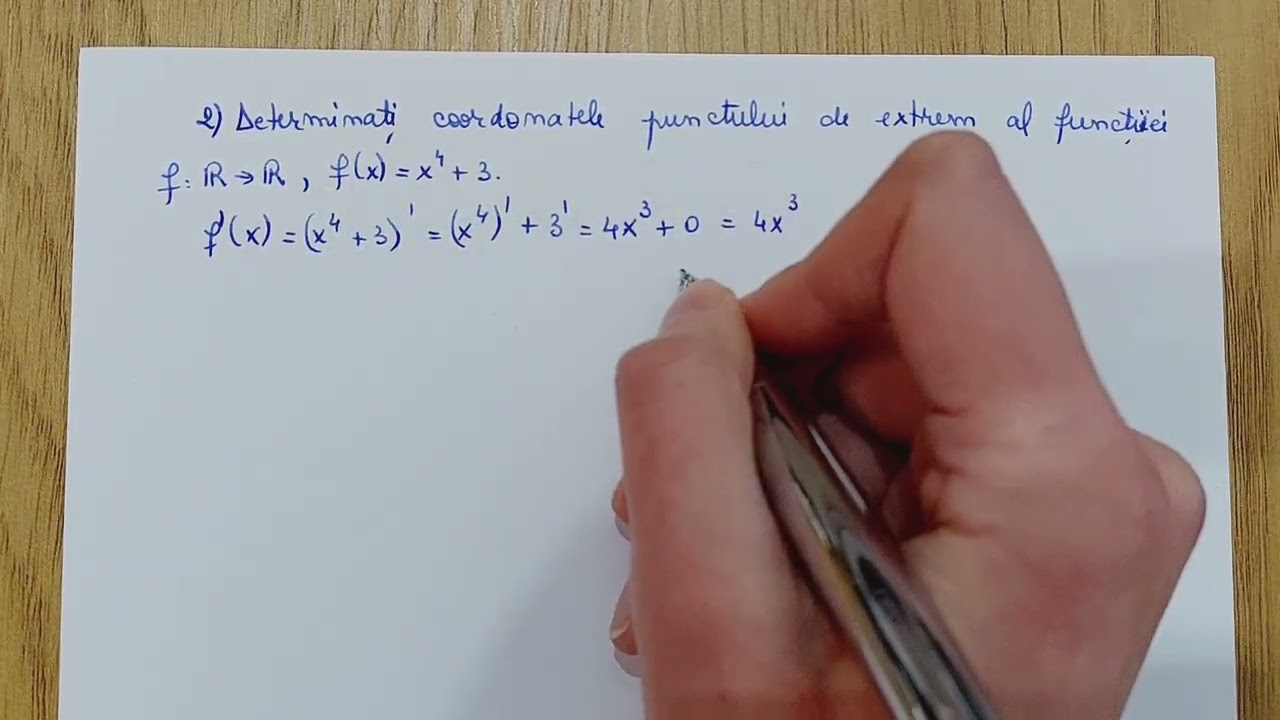 2) Determinați coordonatele punctului de extrem al funcției
f: ℝ → ℝ, f(x) = x⁴ + 3.
f'(x) = (x⁴ + 3)' = (x⁴)' + 3' = 4x³ + 0 = 4x³